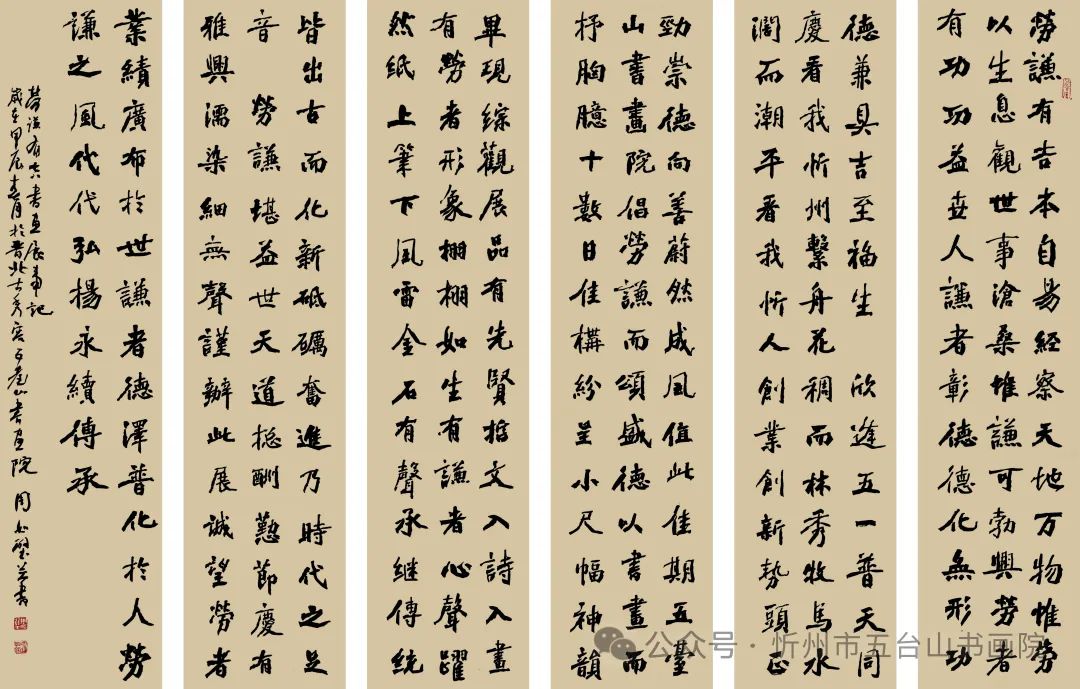 勞謙有吉本自易經察天地万物惟勞
以生息觀世事滄桑惟謙可勃興勞者
有功功益世人謙者彰德德化無形功
德兼具吉至福生 欣逢五一普天同
慶看我忻州繫舟花稠而林秀牧馬水
濶而潮平看我忻人創業創新勢頭正
勁崇德向善蔚然成風值此佳期五臺
山書畫院倡勞謙而頌盛德以書畫而
抒胸臆十數日佳構紛呈小尺幅神韻
畢現綜觀展品有先賢哲文入詩入畫
有勞者形象栩栩如生有謙者心聲躍
然紙上筆下風雷金石有聲承继傳統
皆出古而化新砥礪奮進乃時代之足
音 勞謙堪益世天道總酬懃節慶有
雅興濡染細無聲謹辦此展誠望勞者
業績廣布於世謙者德澤普化於人勞
謙之風代代弘揚永續傳承
勞謙有吉書画展記
歲在甲辰春月於晋北古秀容五臺山書画院 周
公众号·忻州市五台山书画院